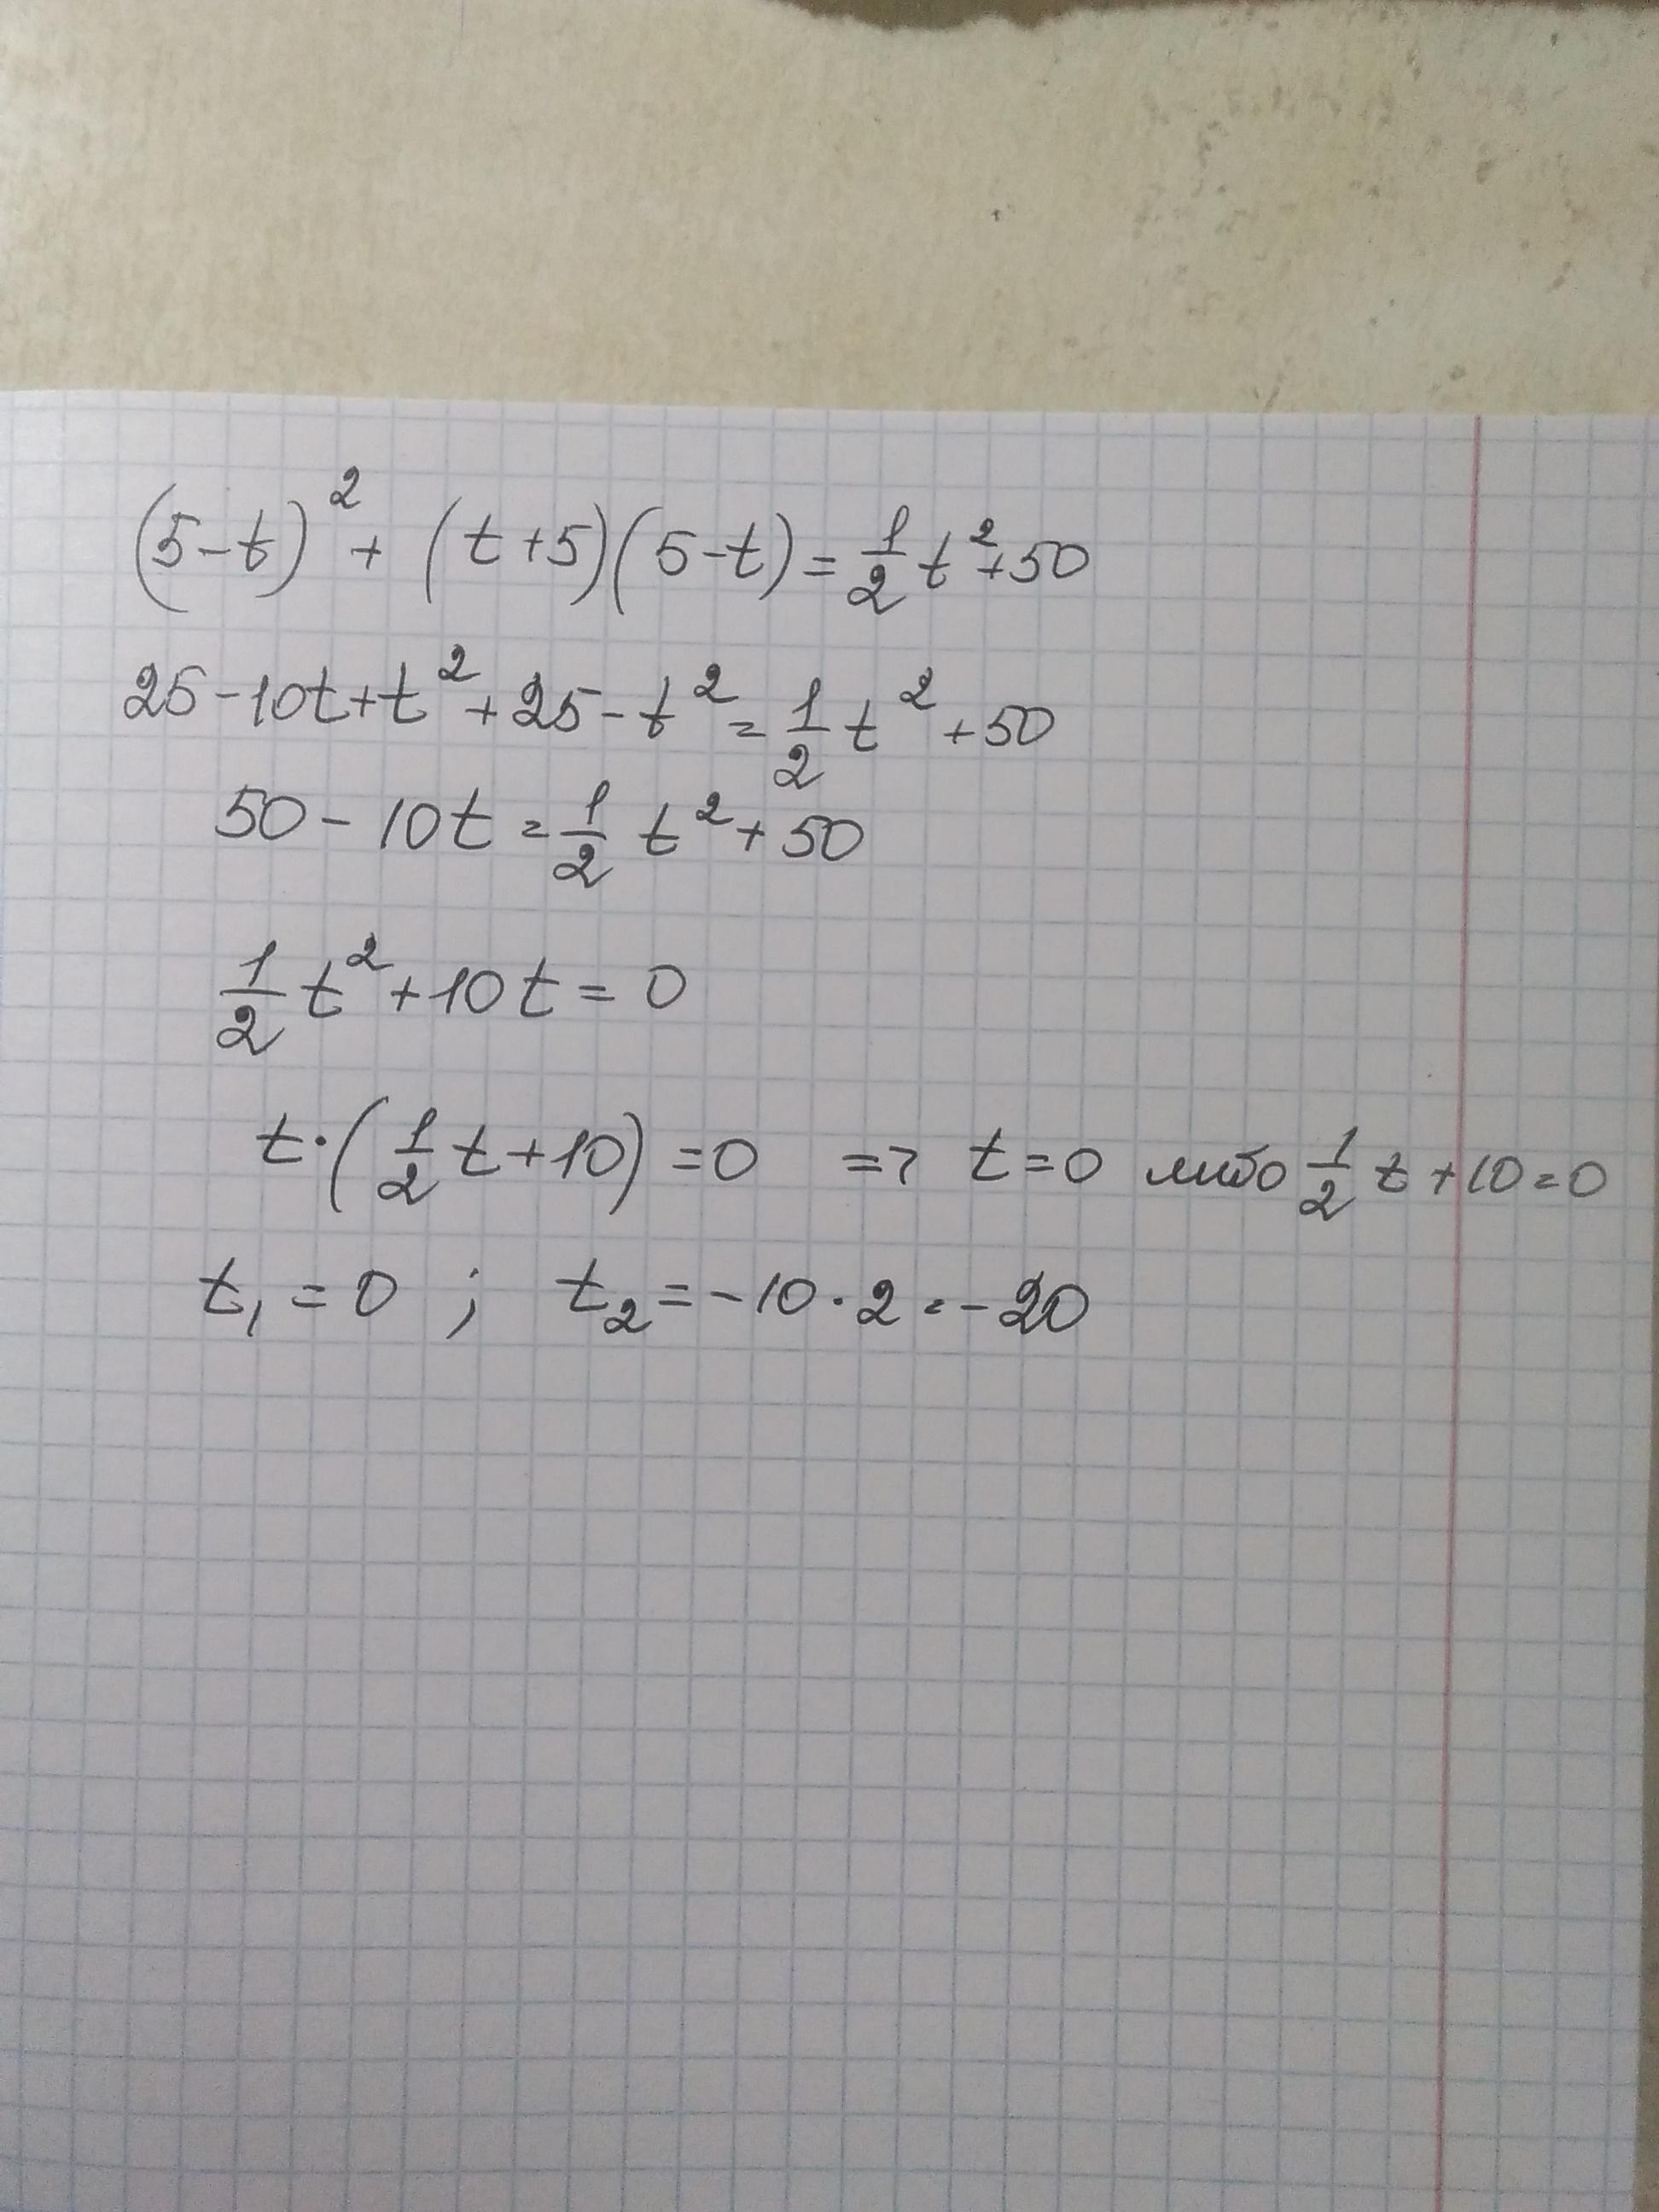 (5-t)² + (t+5)(5-t) = 1/2 t² + 50
25 - 10t + t² + 25 - t² = 1/2 t² + 50
50 - 10t = 1/2 t² + 50
1/2 t² + 10t = 0
t · (1/2 t + 10) = 0 => t = 0 либо 1/2 t + 10 = 0
t₁ = 0 ; t₂ = -10 · 2 = -20